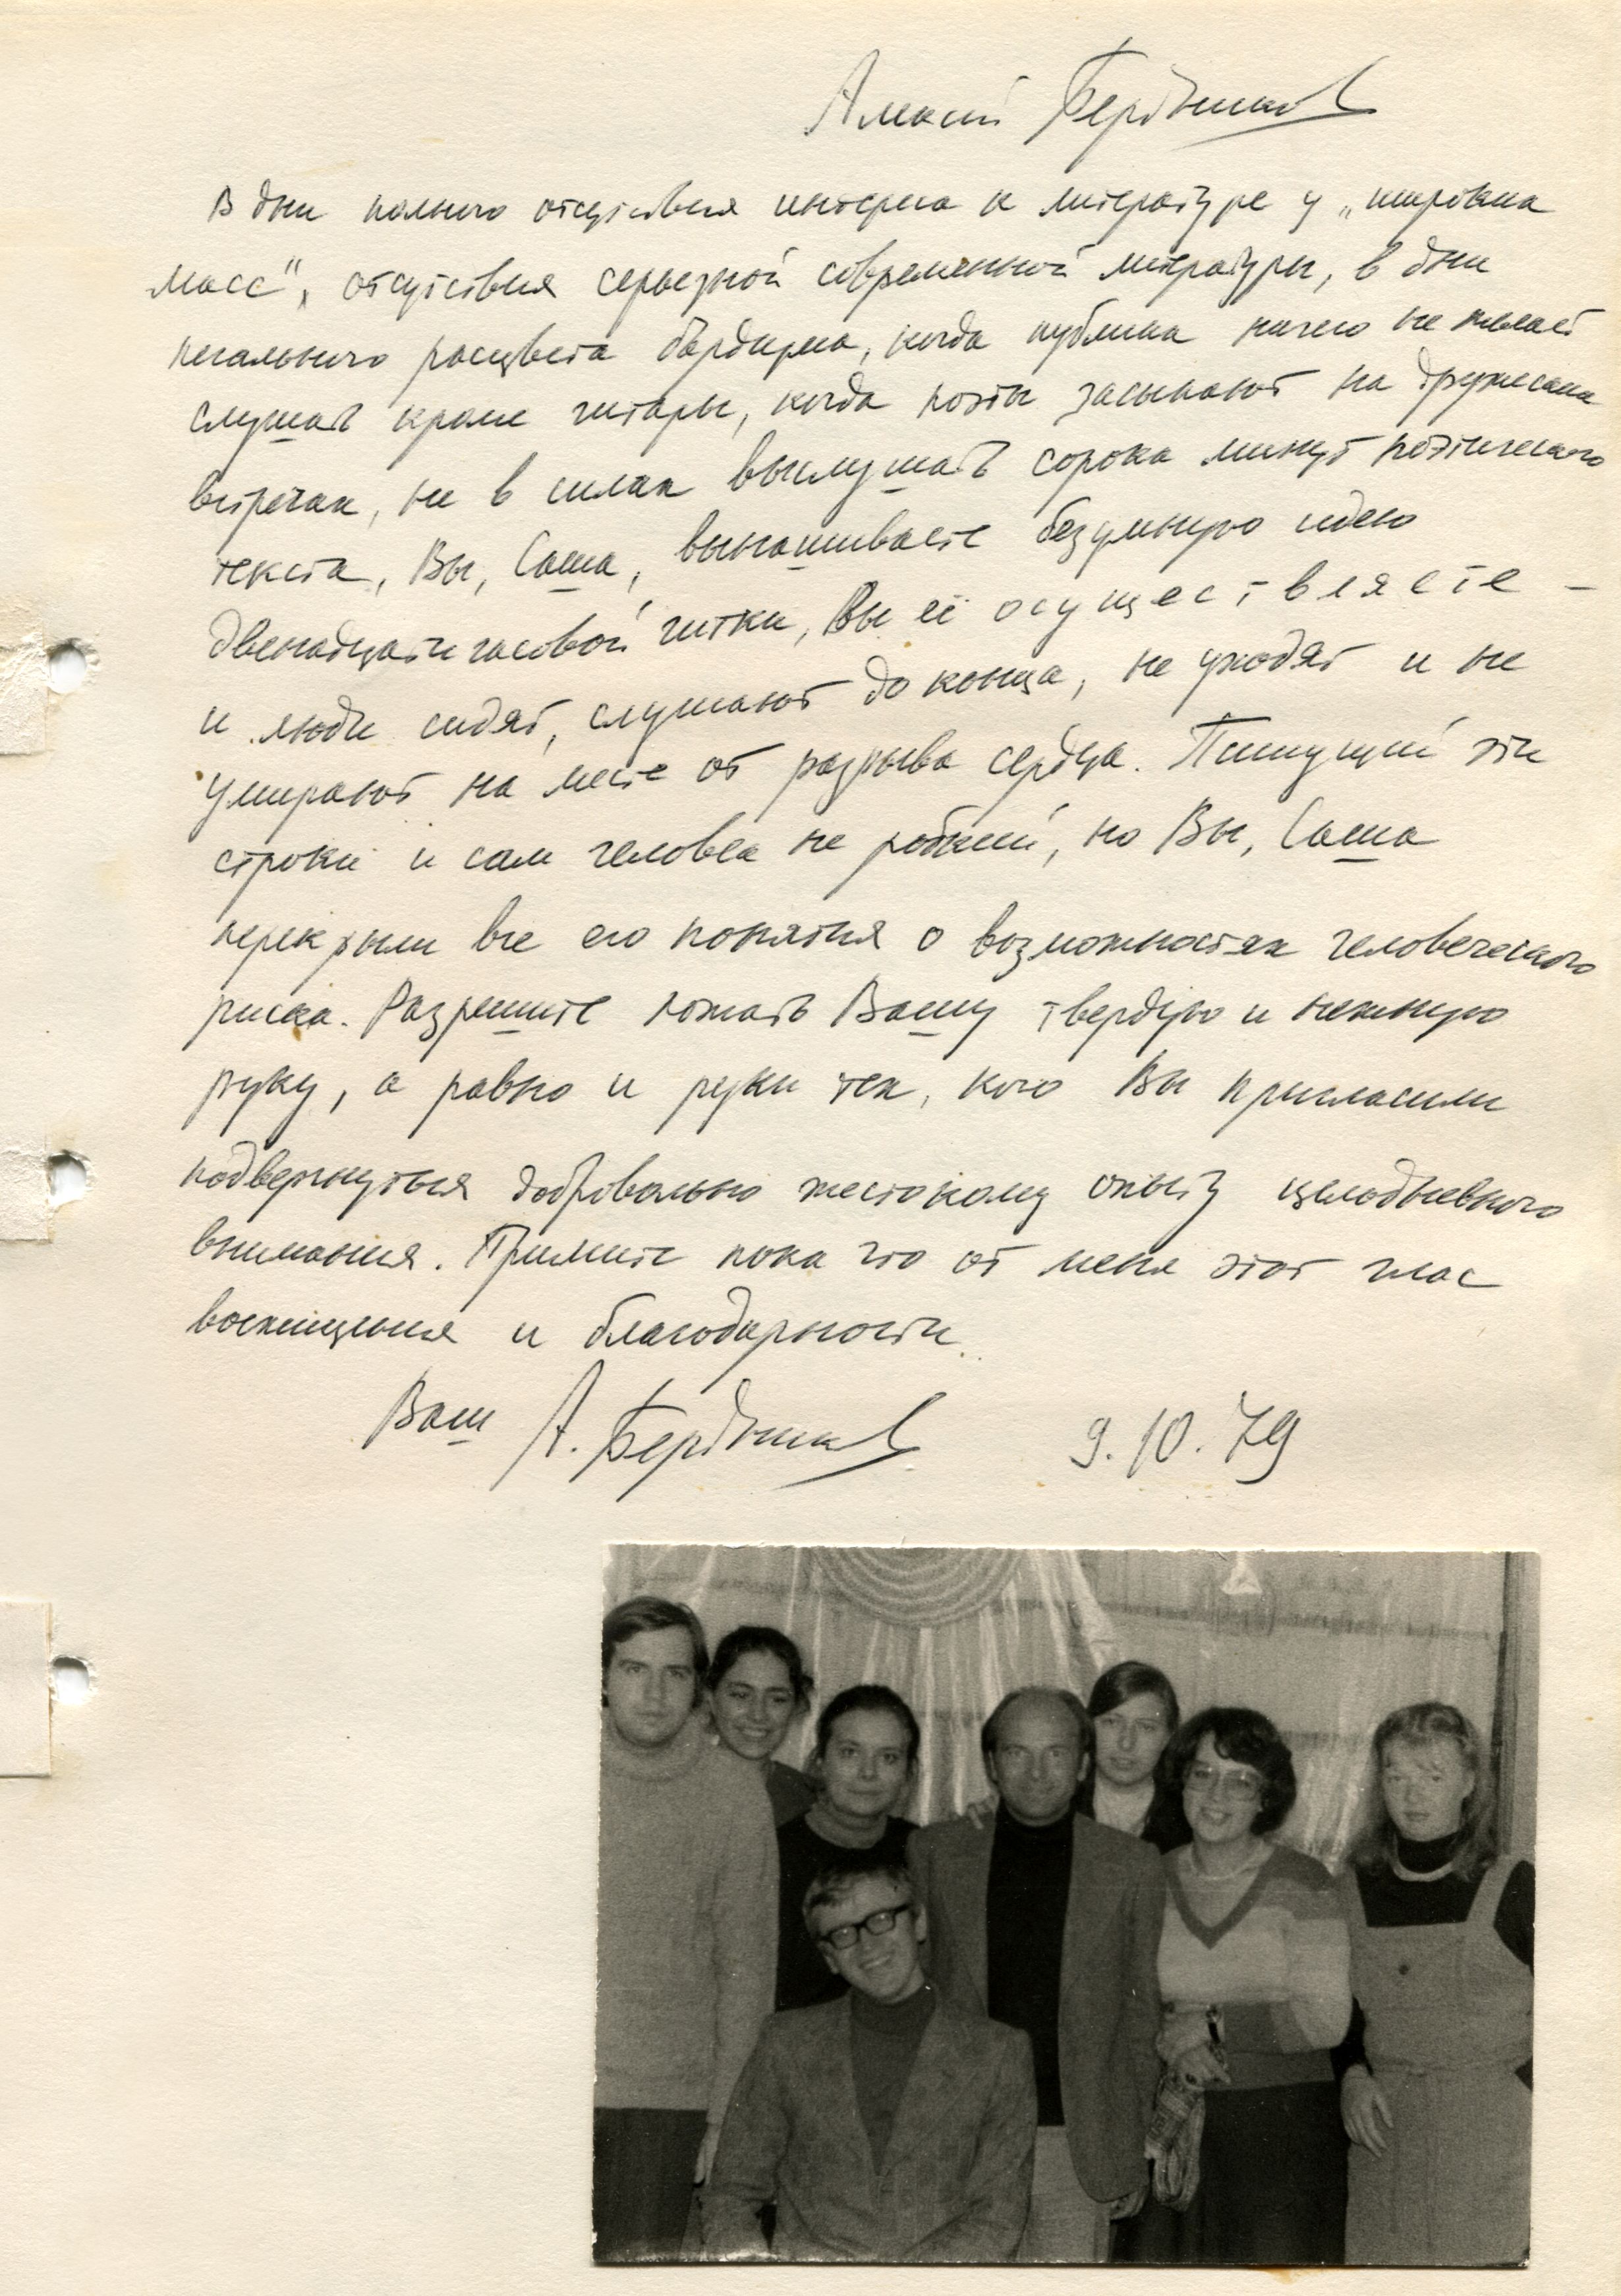 Алексей Бердников
В дни полного отсутствия интереса к литературе у „широких
масс", отсутствия серьезной современной литературы, в дни
печального расцвета бардизма, когда публика ничего не желает
слушать кроме гитары, когда поэты засыпают на дружеских
встречах, не в силах выслушать сорока минут поэтического
текста, Вы, Саша, вынашиваете безумную идею
двенадцатичасовой читки, Вы её осуществляете –
и люди сидят, слушают до конца, не уходят и не
умирают на месте от разрыва сердца. Пишущий эти
строки и сам человек не робкий, но Вы, Саша
перекрыли все его понятия о возможностях человеческого
риска. Разрешите пожать Вашу твердую и нежную
руку, а равно и руки тех, кого Вы пригласили
подвергнуться добровольно жестокому опыту целодневного
внимания. Примите пока что от меня этот глас
восхищения и благодарности.
Ваш А. Бердников 9.10.79